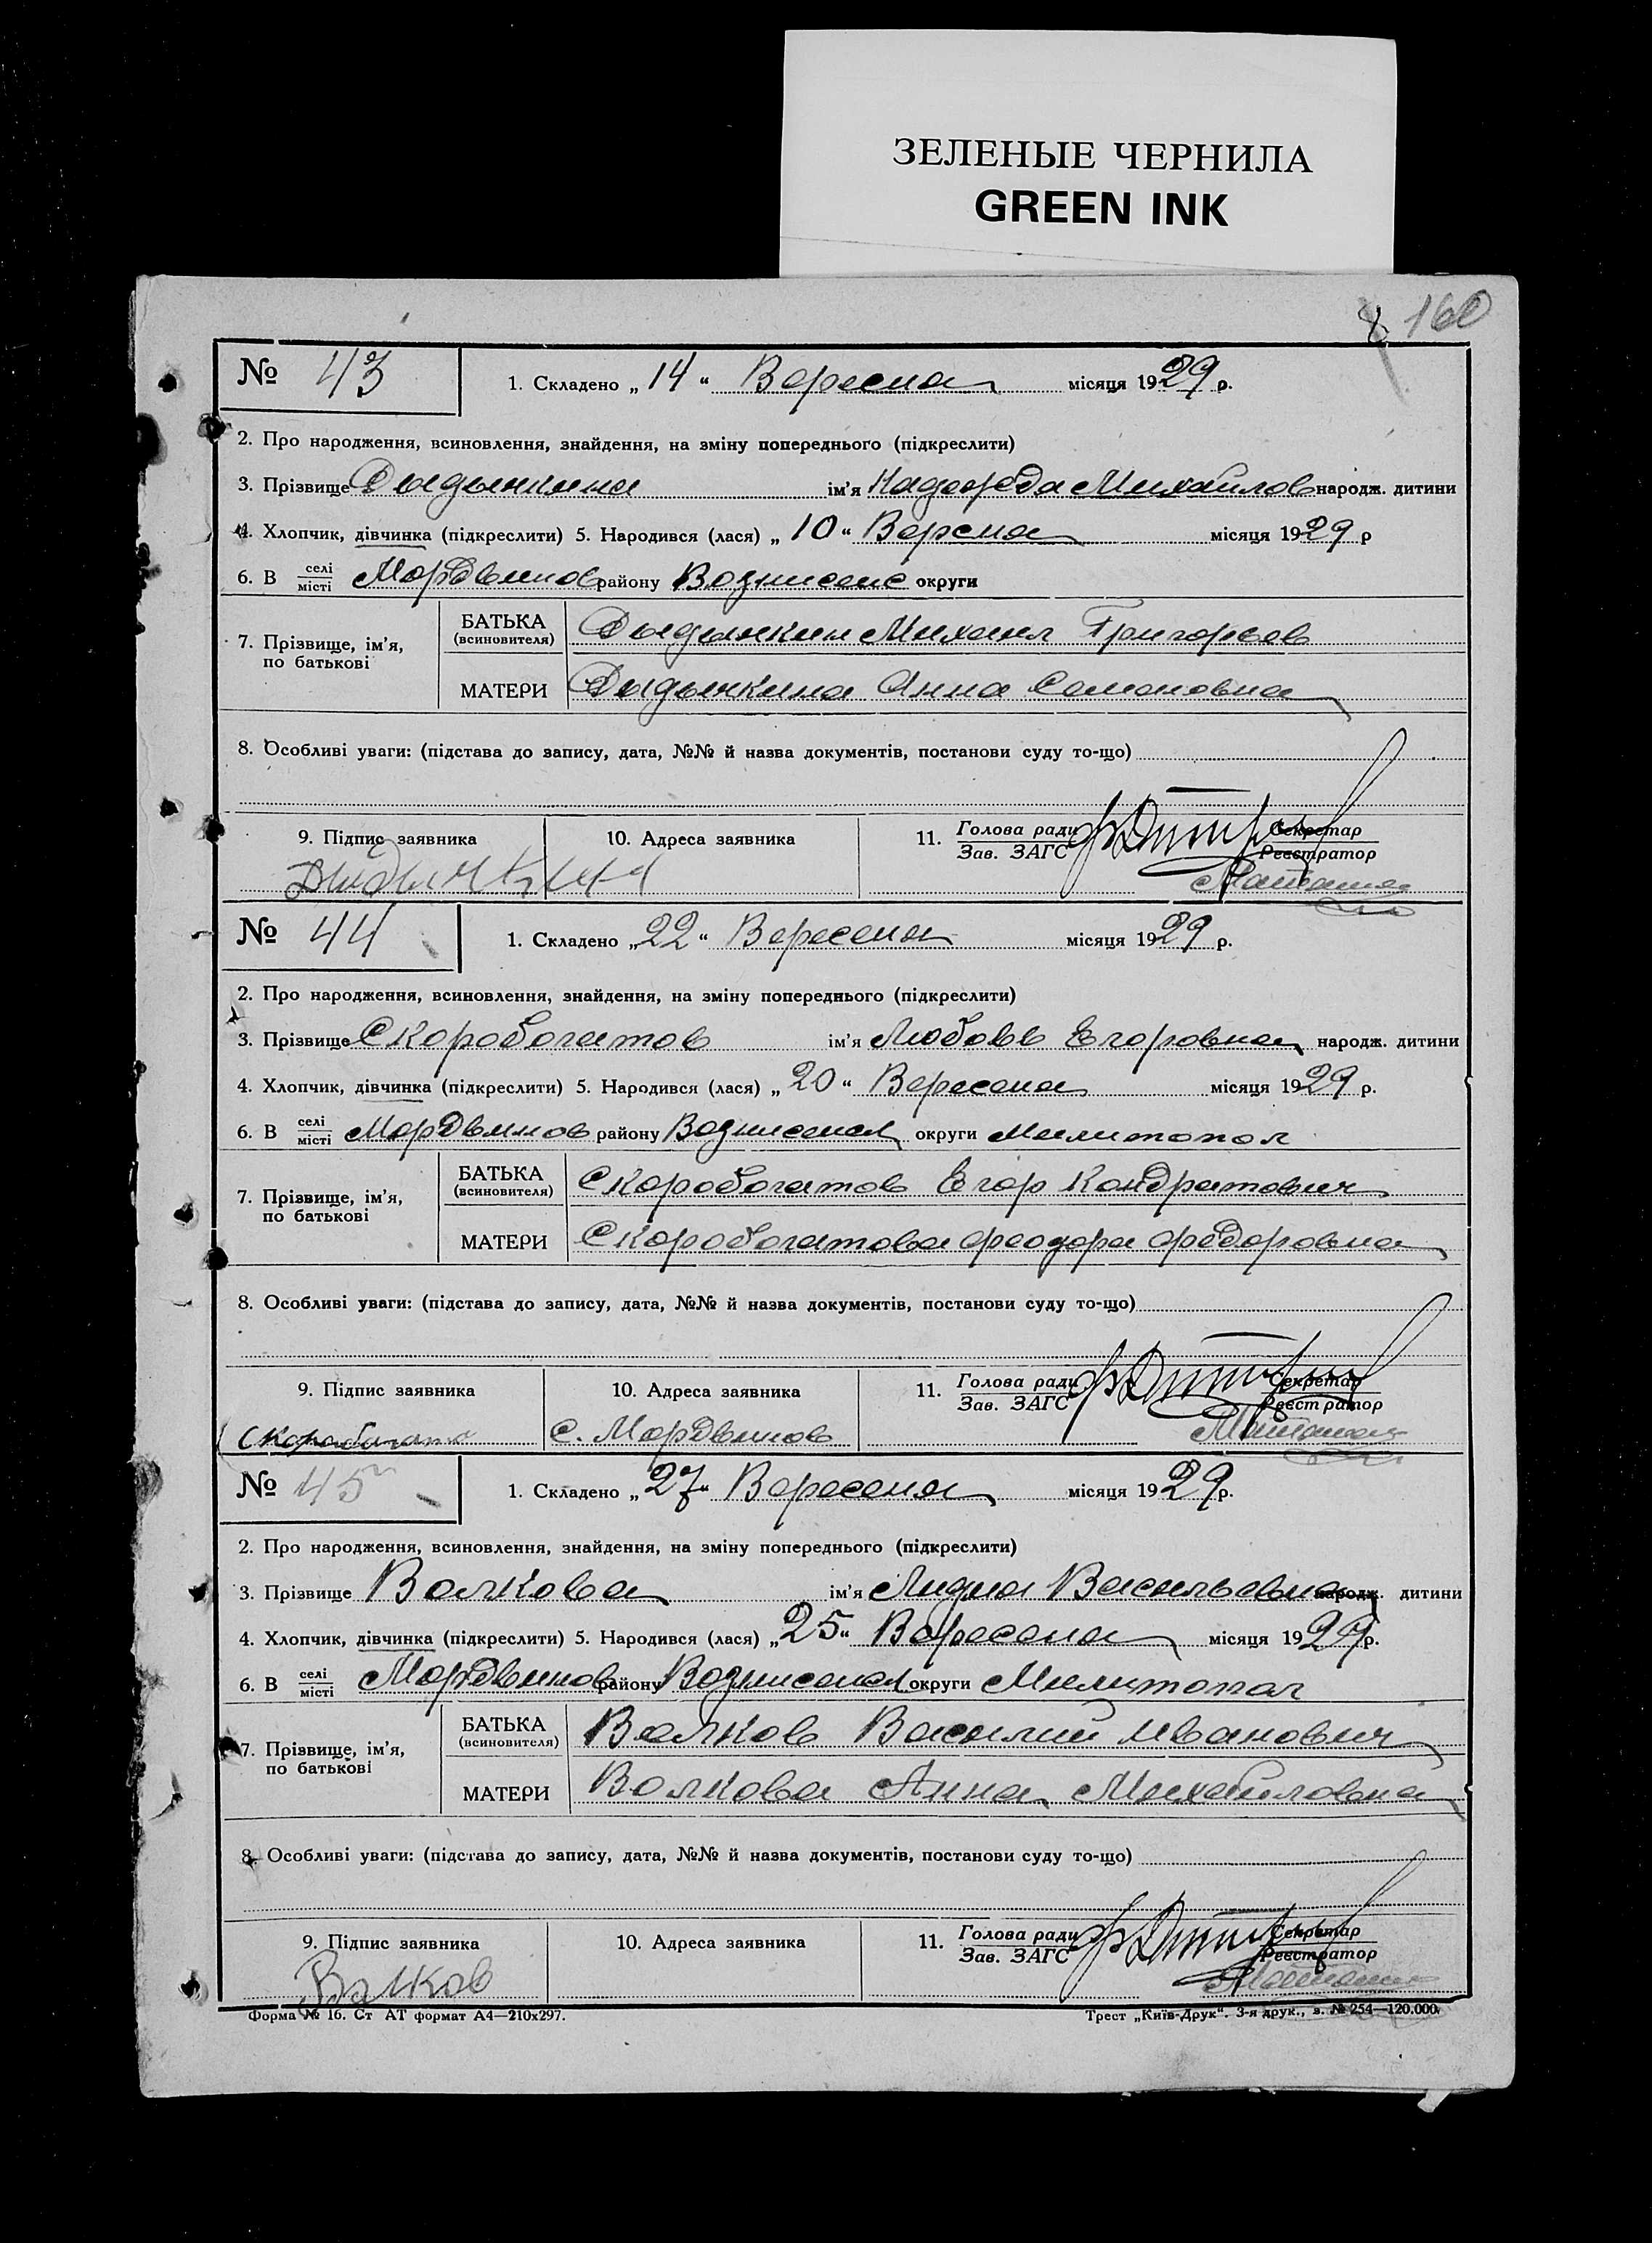 ЗЕЛЕНЫЕ ЧЕРНИЛА
GREEN INK
160
№ 43 1. Складено „ 14 “ Вересна місяця 1929 р.
2. Про народження, всиновлення, знайдення, на зміну попереднього (підкреслити)
3. Прізвище Дыдычкина ім'я Надежда Михайлов народж. дитини
4. Хлопчик, дівчинка (підкреслити) 5. Народився (лася) „ 10 “ Версна місяця 1929 р
6. В селі/місті Мордвинов району Вознисенс округи
7. Прізвище, ім'я, по батькові БАТЬКА (всиновителя) Дыдычкин Михаил Григорьев
МАТЕРИ Дыдычкина Анна Семеновна
8. Особливі уваги: (підстава до запису, дата, №№ й назва документів, постанови суду то-що)
9. Підпис заявника 10. Адреса заявника 11. Голова ради/Зав. ЗАГС Секретар/Реєстратор
№ 44 1. Складено „ 22 “ Вересена місяця 1929 р.
2. Про народження, всиновлення, знайдення, на зміну попереднього (підкреслити)
3. Прізвище Скоробогатов ім'я Любовь Егоровна народж. дитини
4. Хлопчик, дівчинка (підкреслити) 5. Народився (лася) „ 20 “ Вересена місяця 1929 р.
6. В селі/місті Мордвинов району Вознисенск округи Милитопол
7. Прізвище, ім'я, по батькові БАТЬКА (всиновителя) Скоробогатов Егор Кондратович
МАТЕРИ Скоробогатова Феодора Федоровна
8. Особливі уваги: (підстава до запису, дата, №№ й назва документів, постанови суду то-що)
9. Підпис заявника 10. Адреса заявника 11. Голова ради/Зав. ЗАГС Секретар/Реєстратор
с. Мордвинов
№ 45 1. Складено „ 27 “ Вересена місяця 1929 р.
2. Про народження, всиновлення, знайдення, на зміну попереднього (підкреслити)
3. Прізвище Волкова ім'я Лидия Васильевна народж. дитини
4. Хлопчик, дівчинка (підкреслити) 5. Народився (лася) „ 25 “ Вересена місяця 1929 р.
6. В селі/місті Мордвинов району Вознисенск округи Милитопол
7. Прізвище, ім'я, по батькові БАТЬКА (всиновителя) Волков Василий Иванович
МАТЕРИ Волкова Анна Михайловна
8. Особливі уваги: (підстава до запису, дата, №№ й назва документів, постанови суду то-що)
9. Підпис заявника 10. Адреса заявника 11. Голова ради/Зав. ЗАГС Секретар/Реєстратор
Волков
Форма № 16. Ст АТ формат А4—210x297. Трест „Київ-Друк“. 3-я друк., з. № 254—120.000.